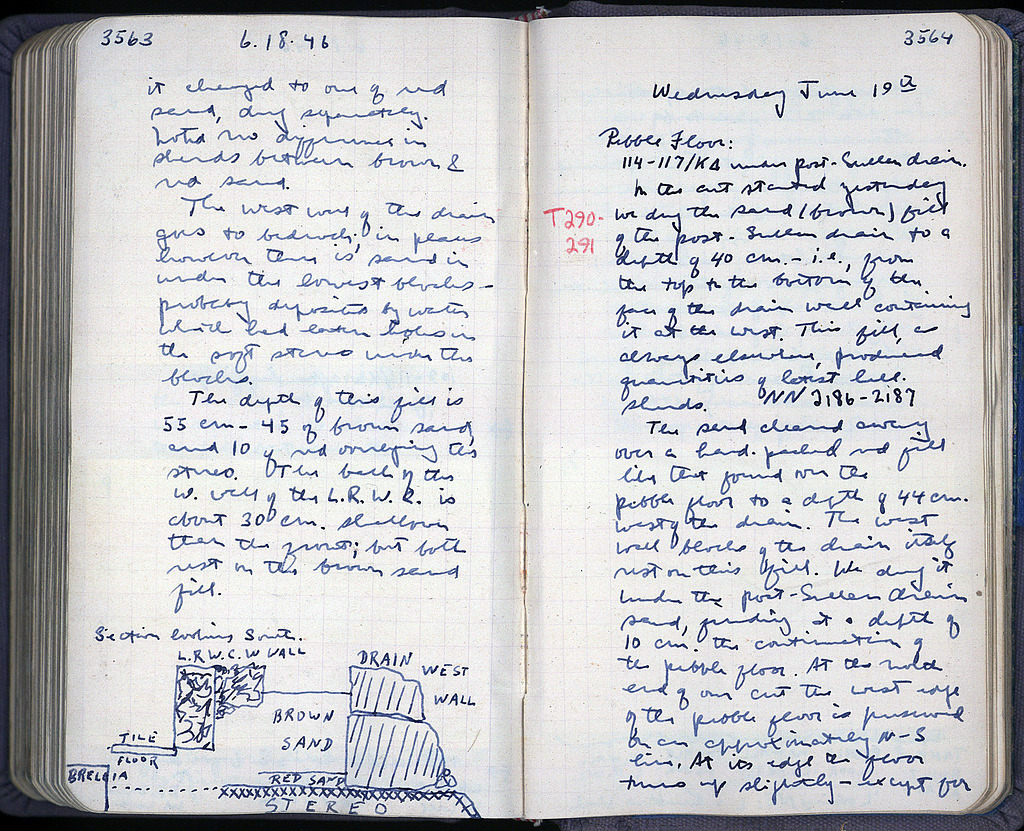 3563 6.18.46
it changed to one of red
sand, dug separately.
Noted no difference in
sherds between brown &
red sand.
The west wall of the drain
goes to bedrock; in places
however there is sand in
under the lowest blocks -
probably deposited by water
which had eaten holes in
the soft stereo under the
blocks.
The depth of this fill is
55 cm - 45 of brown sand,
and 10 of red overlying the
stereo. The back of the
W. wall of the L.R.W.C. is
about 30 cm. shallower
than the front; but both
rest on the brown sand
fill.
Section looking South.
L.R.W.C. W WALL
DRAIN
WEST
WALL
BROWN
SAND
TILE
FLOOR
BRECCIA
RED SAND
STEREO
3564
Wednesday June 19th
Pebble Floor:
114-117/KΔ under post-Sullan drain.
In the cut started yesterday
T290-
291
we dug the sand (brown) fill
of the post-Sullan drain to a
depth of 40 cm. - i.e., from
the top to the bottom of the
face of the drain wall containing
it at the west. This fill, as
always elsewhere, produced
quantities of latest hell.
sherds. NN 2186-2187
The sand cleared away
over a hard-packed red fill
like that found over the
pebble floor to a depth of 44 cm.
west of the drain. The west
wall blocks of the drain itself
rest on this fill. We dug it
under the post-Sullan drain
sand, finding at a depth of
10 cm. the continuation of
the pebble floor. At the north
end of our cut the west edge
of the pebble floor is preserved
on an approximately N-S
line. At its edge the floor
turns up slightly - except for